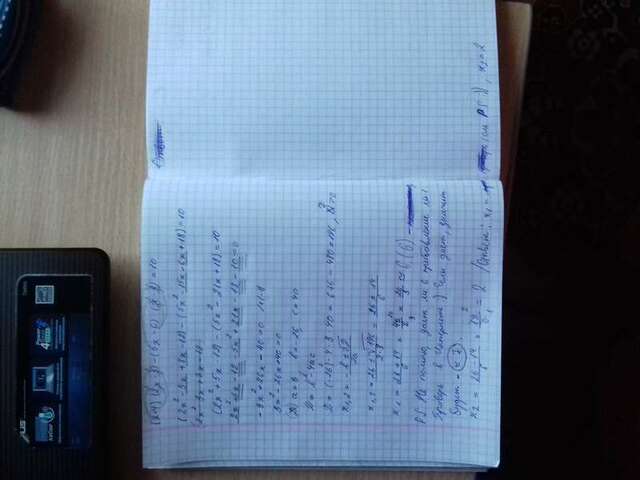 ASUS
(x+4)(2x-3)-(5x-6)(x-3)=10
(2x²-3x+8x-12)-(5x²-15x-6x+18)=10
2x²-3x+8x-12
(2x²+5x-12)-(5x²-21x+18)=10
2x²+5x-12-5x²+21x-18-10=0
-3x²+26x-40=0
3x²-26x+40=0
a=3, b=-26, c=40
D=b²-4ac
D=(-26)²-4·3·40=676-480=196, D>0
x₁,₂=-b±√D/2a
x₁,₂=26±√196/2·3=26±14/6
x₁=26+14/6=40/6=20/3≈6,(6)
PS Не помню, дают ли в
Проверь в Интернете :) Если дают, значит
будет
x₂=26-14/6=12/6=2 Ответ: x₁= (см PS), x₂=2
Ответ